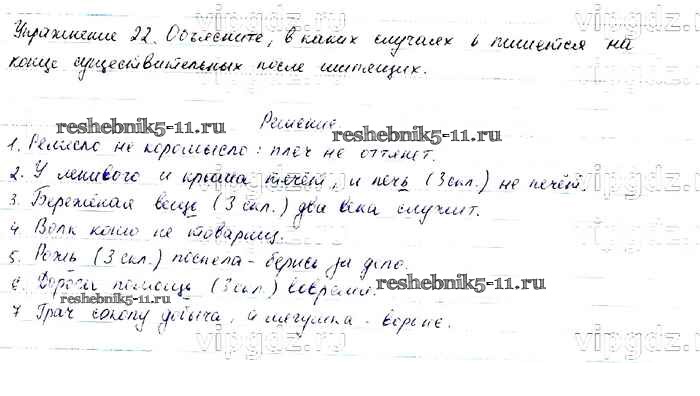 Упражнение 22. Объясните, в каких случаях ь пишется на
конце существительных после шипящих.
Решение
reshebnik5-11.ru
reshebnik5-11.ru
1. Ремесло не коромысло: плеч не оттянет.
2. У ленивого и крыша течёт, и печь (3 скл.) не печёт.
3. Бережёная вещь (3 скл.) два века служит.
4 Волк коню не товарищ.
5. Рожь (3 скл.) поспела - берись за дело.
6. Дорога помощь (3 скл.) вовремя.
reshebnik5-11.ru
reshebnik5-11.ru
7 Грач соколу добыча, а лягушка - вороне.
vipgdz.ru
vipgdz.ru
vipgdz.ru
vipgdz.ru
vipgdz.ru
vipgdz.ru